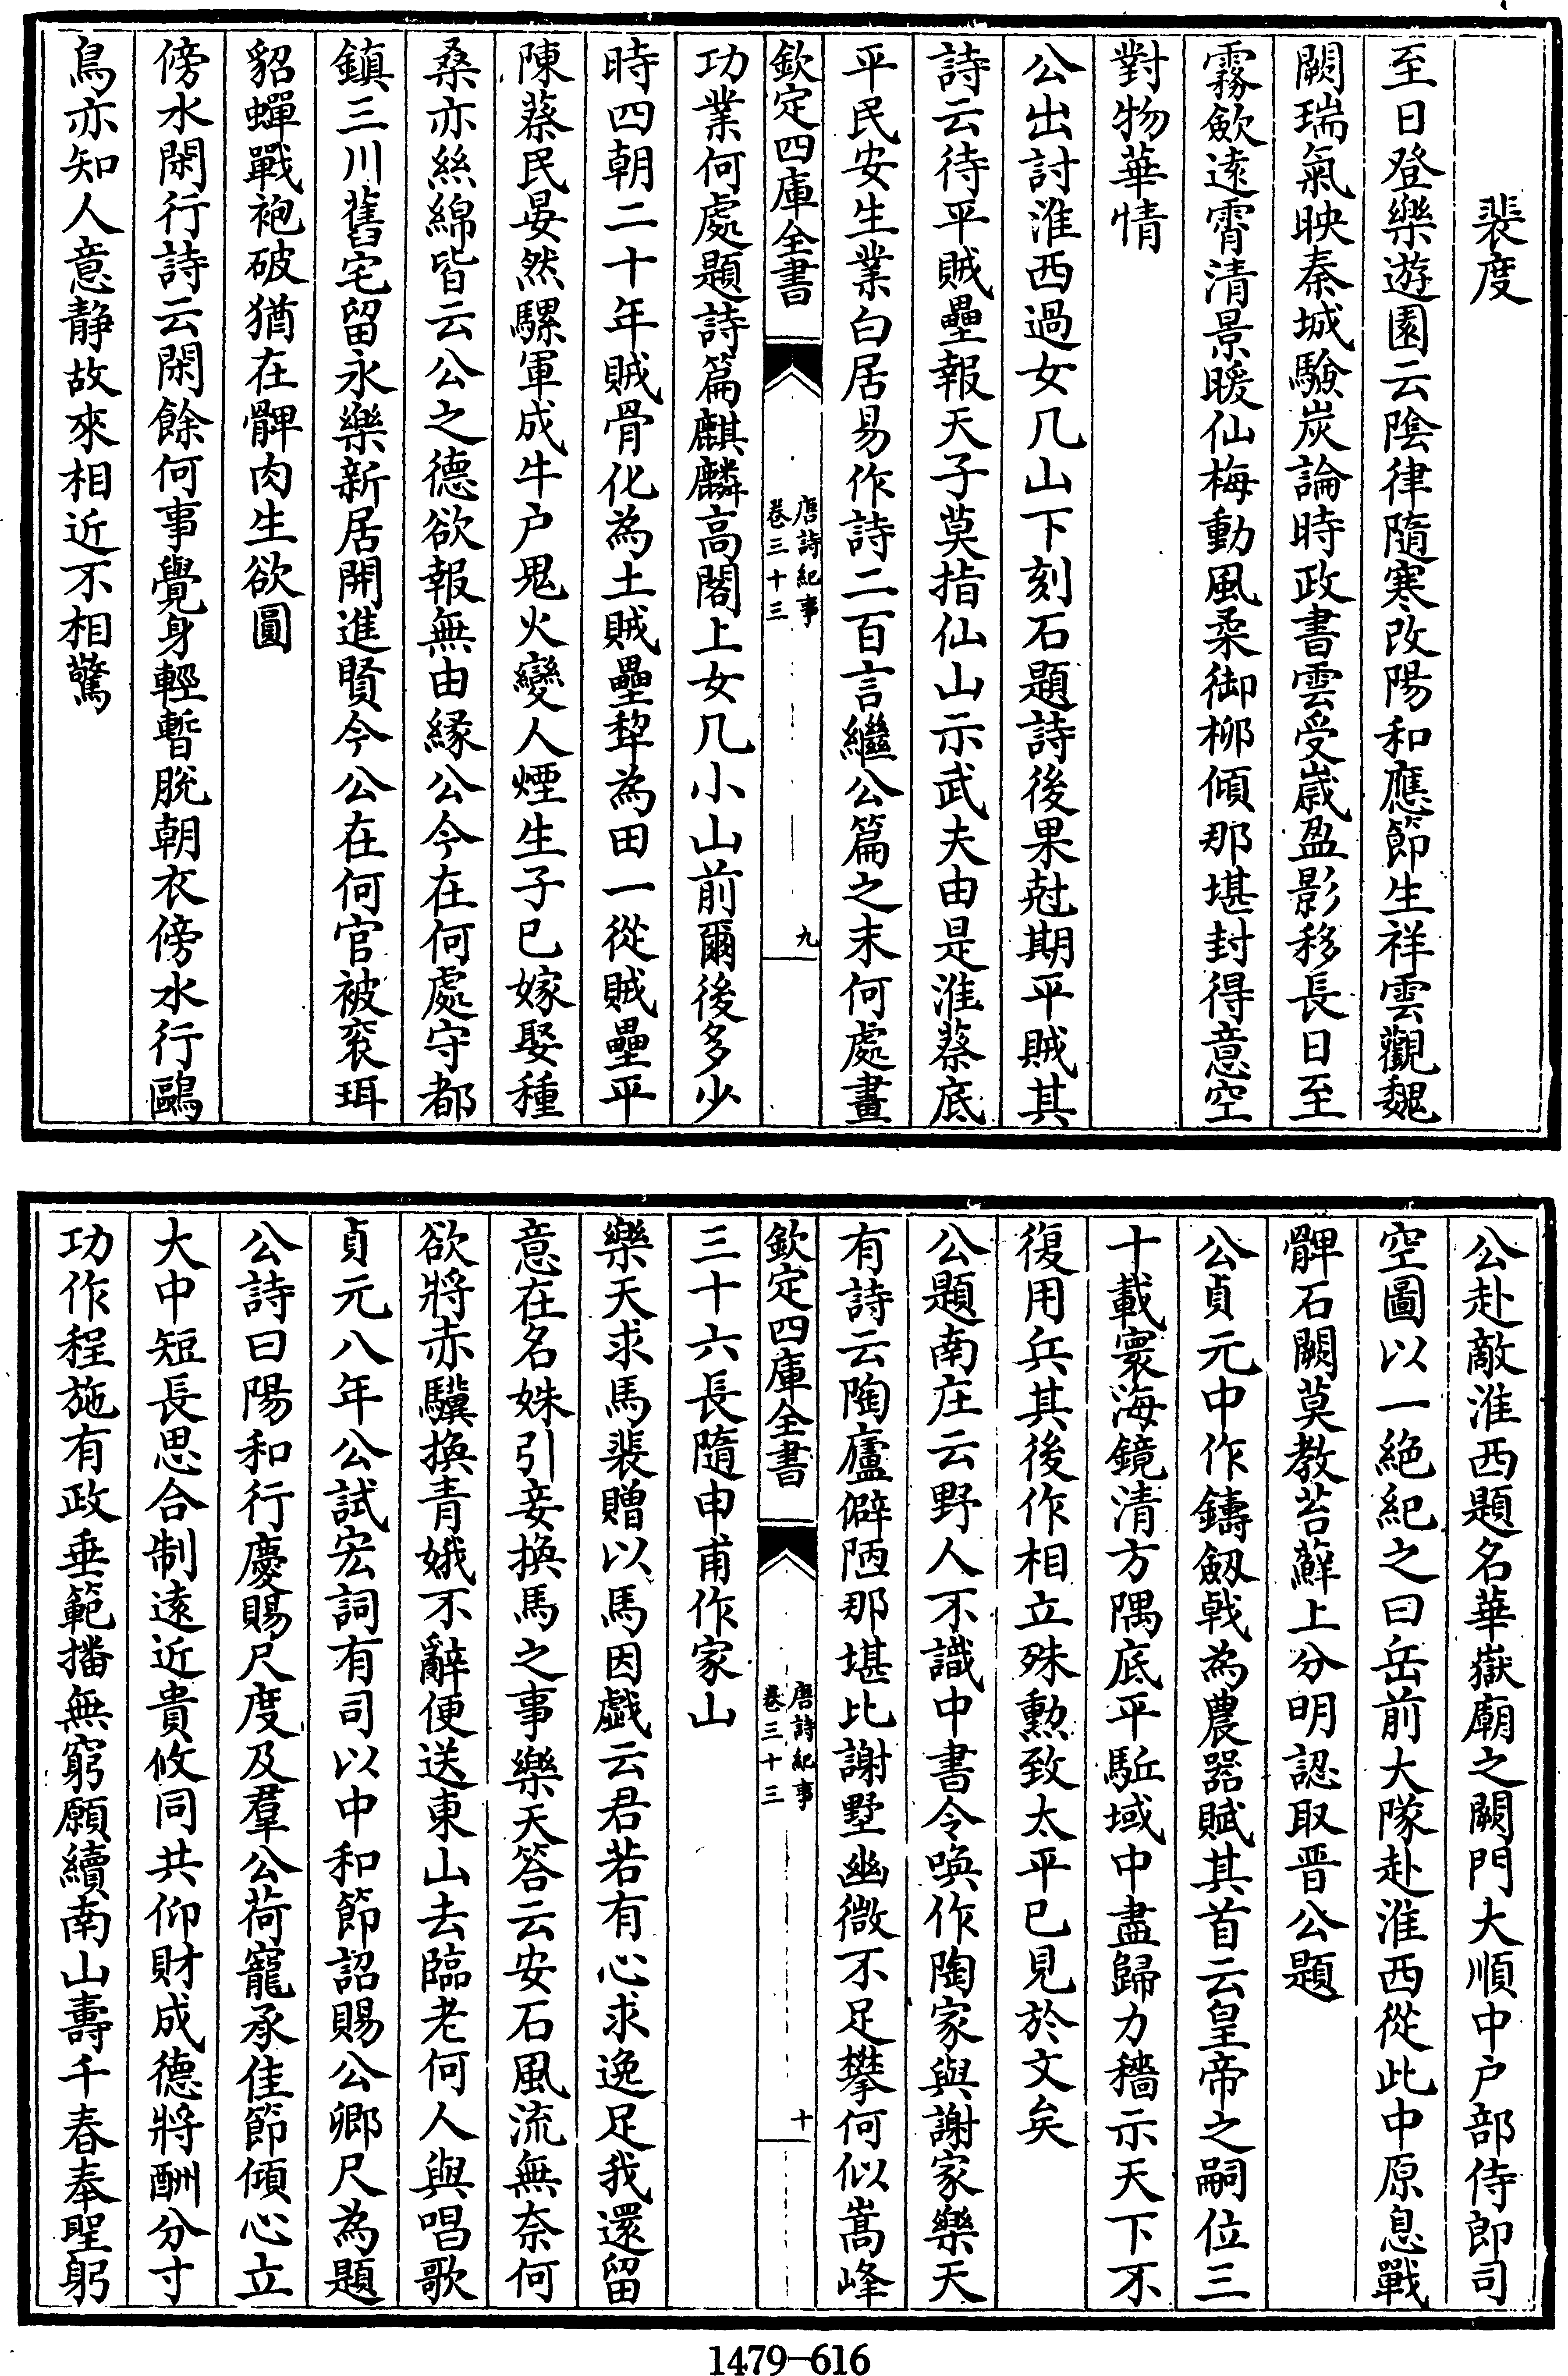 裴度
至日登樂遊園云陰律隨寒改陽和應節生祥雲觀魏
闕瑞氣映秦城驗炭論時政書雲受歲盈影移長日至
霧歛遠霄清景暖仙梅動風柔御柳傾那堪封得意空
對物華情
公出討淮西過女几山下刻石題詩後果尅期平賊其
詩云待平賊壘報天子莫指仙山示武夫由是淮蔡底
平民安生業白居易作詩二百言繼公篇之末何處畫
欽定四庫全書
唐詩紀事
卷三十三
九
功業何處題詩篇麒麟高閣上女几小山前爾後多少
時四朝二十年賊骨化為土賊壘犂為田一從賊壘平
陳蔡民晏然騾軍成牛户鬼火變人煙生子已嫁娶種
桑亦絲綿皆云公之德欲報無由緣公今在何處守都
鎮三川舊宅留永樂新居開進賢今公在何官被衮珥
貂蟬戰袍破猶在髀肉生欲圓
傍水閑行詩云閑餘何事覺身輕暫脫朝衣傍水行鷗
鳥亦知人意静故來相近不相驚
公赴敵淮西題名華嶽廟之闕門大順中户部侍郎司
空圖以一絶紀之曰岳前大隊赴淮西從此中原息戰
鼙石闕莫教苔蘚上分明認取晋公題
公貞元中作鑄劔戟為農器賦其首云皇帝之嗣位三
十載寰海鏡清方隅底平駈域中盡歸力穡示天下不
復用兵其後作相立殊勲致太平已見於文矣
公題南庄云野人不識中書令喚作陶家與謝家樂天
有詩云陶廬僻陋那堪比謝墅幽微不足攀何似嵩峰
欽定四庫全書
唐詩紀事
卷三十三
十
三十六長隨申甫作家山
樂天求馬裴贈以馬因戯云君若有心求逸足我還留
意在名姝引妾換馬之事樂天答云安石風流無奈何
欲將赤驥換青娥不辭便送東山去臨老何人與唱歌
貞元八年公試宏詞有司以中和節詔賜公卿尺為題
公詩曰陽和行慶賜尺度及羣公荷寵承佳節傾心立
大中短長思合制遠近貴攸同共仰財成德將酬分寸
功作程施有政垂範播無窮願續南山壽千春奉聖躬
1479-616